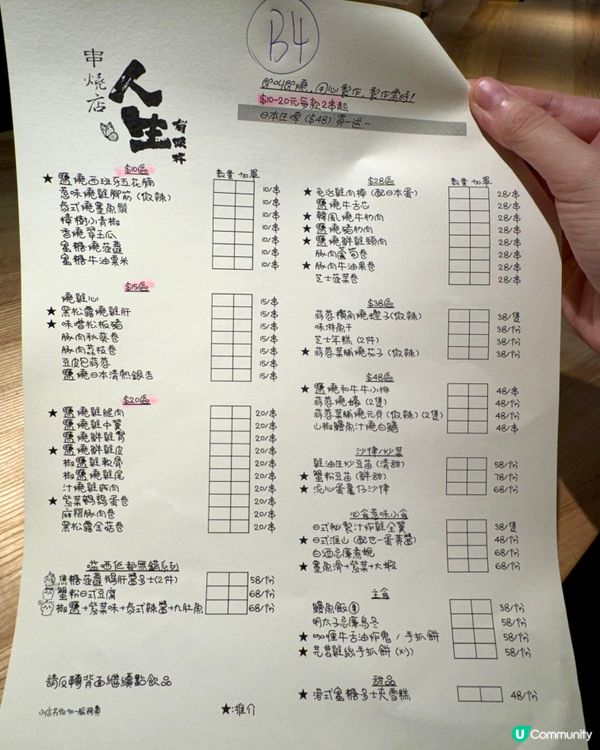 B4
串燒店
人生
有限杯
即叫即燒,用心製作,製作需時!
$10-20元每款2串起
日本生啤 ($48) 買一送一
$10區 數量 加單
★ 鹽燒西班牙五花腩 10/串
惹味燒雞腳筋 (微辣) 10/串
泰式燒墨魚鬚 10/串
樟樹小青椒 10/串
香燒翠玉瓜 10/串
蜜糖燒菠蘿 10/串
蜜糖牛油粟米 10/串
$15區
燒雞心 15/串
★ 黑松露燒雞肝 15/串
★ 味噌松板豬 15/串
豚肉秋葵卷 15/串
豚肉荔枝卷 15/串
豆皮巴蒜蓉 15/串
鹽燒日本清熱銀杏 15/串
$20區
★ 鹽燒雞腿肉 20/串
鹽燒雞中翼 20/串
鹽燒鮮雞腎 20/串
★ 鹽燒鮮雞皮 20/串
椒鹽雞軟骨 20/串
椒鹽燒雞尾 20/串
汁燒雞腿肉 20/串
★ 紫菜鵪鶉蛋卷 20/串
麻糬豚肉卷 20/串
黑松露金菇卷 20/串
嗌晒佢都無錯系列
焦糖菠蘿鵝肝醬多士(2件) 58/份
蟹粉日式豆腐 68/份
椒鹽+紫菜味+泰式辣醬+九肚魚 68/份
請反轉背面繼續點飲品
小店另收加一服務費
★:推介
$28區 數量 加單
★ 免治雞肉棒 (配日本蛋) 28/串
鹽燒牛舌芯 28/串
★ 韓風燒牛肋肉 28/串
★ 鹽燒豬肋肉 28/串
★ 鹽燒鮮雞頸肉 28/串
豚肉蘆筍卷 28/串
★ 豚肉牛油果卷 28/串
芝士菠菜卷 28/串
$38區
蒜蓉橫角燒蟶子(微辣) 38/隻
味淋魚干 38/份
芝士年糕 (2件) 38/份
★ 蒜蓉菜脯燒茄子 (微辣) 38/份
$48區
★ 鹽燒和牛牛小排 48/串
蒜蓉燒蠔 (2隻) 48/份
蒜蓉菜脯燒元貝 (微辣) (2隻) 48/份
山椒鰻魚汁燒白鱔 48/串
沙律/炒菜
雞油生炒豆苗 (清甜) 58/份
★ 蟹粉豆苗 (鮮甜) 78/份
★ 流心蛋薯仔沙律 68/份
必食惹味小食
日式秘製汁炸雞全翼 38/隻
★ 日式淮山 (配一蛋黃醬) 48/份
白酒忌廉煮蜆 68/份
★ 墨魚滑+紫菜+大蝦 68/份
主食
鰻魚飯 38/份
明太子忌廉烏冬 58/份
★ 咖喱牛舌油炸鬼 / 手抓餅 58/份
★ 芫荽雞絲手抓餅 58/份
甜品
★ 港式蜜糖多士夾雪糕 48/份
U Community